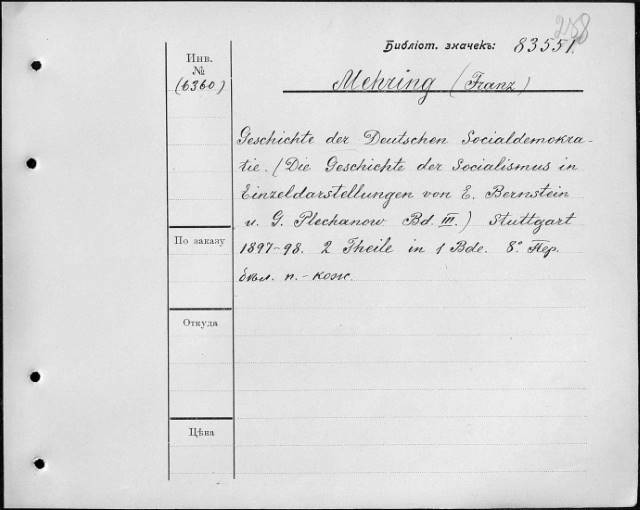 258
Библіот. значекъ: 83551.
Инв.
№
(6360)
Mehring (Franz)
Geschichte der Deutschen Socialdemokra-
tie. (Die Geschichte der Socialismus in
Einzeldarstellungen von E. Bernstein
u. G. Plechanow Bd. III.) Stuttgart
1897-98. 2 Theile in 1 Bde. 8º Пер.
бѣл. п.-кож.
По заказу
Откуда
Цѣна